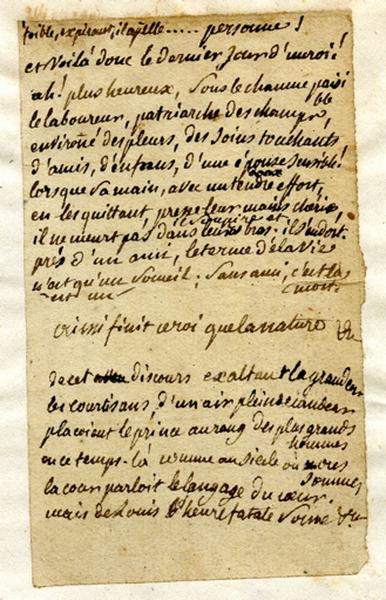 foible, expirant, il apelle ..... personne!
et voilà donc le dernier jour d'un roi!
ah! plus heureux, sous le chaume paisi
ble
le laboureur, patriarche des champs,
environé des pleurs, des soins touchants
d'amis, d'enfans, d'une épouse sensible!
lorsque sa main, avec un tendre effort,
en les quittant, presse leurs mains
il soupire et
il ne meurt pas dans leurs bras. il s'endort.
près d'un ami, le terme de la vie
n'est qu'un someil. Sans ami, c'est la
mort.
est un
ainsi finit ce roi que la nature &c
de cet discours exaltant la grandeur
les courtisans, d'un air plein de candeur
plaçoient le prince au rang des plus grands
hommes
en ce temps-là comme au siècle où nous
sommes
la cour parloit le langage du cœur.
mais de Louis l'heure fatale sonne &c